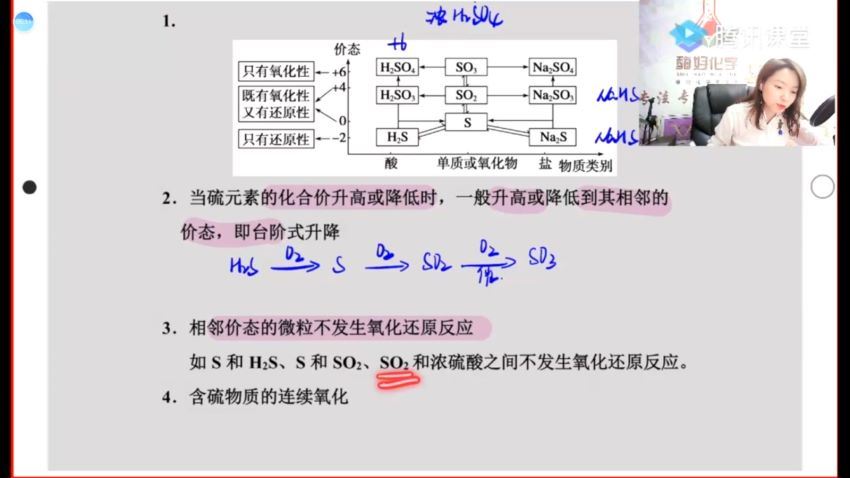 1.
浓H₂SO₄
+6
价态
只有氧化性 +6 H₂SO₄ SO₃ Na₂SO₄
既有氧化性 +4 H₂SO₃ SO₂ Na₂SO₃
又有还原性 0 S
只有还原性 -2 H₂S Na₂S
酸 单质或氧化物 盐 物质类别
2. 当硫元素的化合价升高或降低时，一般升高或降低到其相邻的
价态，即台阶式升降
H₂S O₂ S O₂ SO₂ O₂ SO₃
3. 相邻价态的微粒不发生氧化还原反应
如 S 和 H₂S、S 和 SO₂、SO₂ 和浓硫酸之间不发生氧化还原反应。
4. 含硫物质的连续氧化
腾讯课堂